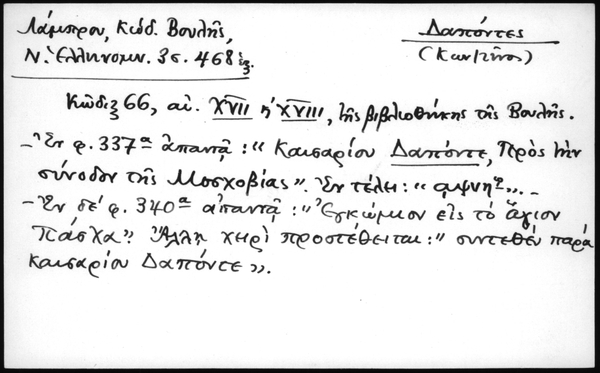 Λάμπρου, Κώδ. Βουλῆς,
Ν. Ἑλληνομν. 3 σ. 468 ἑξ.
Δαπόντες
(Κων/τῖνος)
Κῶδιξ 66, αἰ. XVII ἢ XVIII, τῆς βιβλιοθήκης τῆς Βουλῆς.
– Ἐν φ. 337α ἀπαντᾷ: "Καισαρίου Δαπόντε, Πρὸς τὴν
σύνοδον τῆς Μοσχοβίας". Ἐν τέλει: " ". –
– Ἐν δὲ φ. 340α ἀπαντᾷ: "Ἐγκώμιον εἰς τὸ ἅγιον
Πάσχα". Ἄλλῃ χειρὶ προστέθειται: "συντεθὲν παρὰ
καισαρίου Δαπόντε".